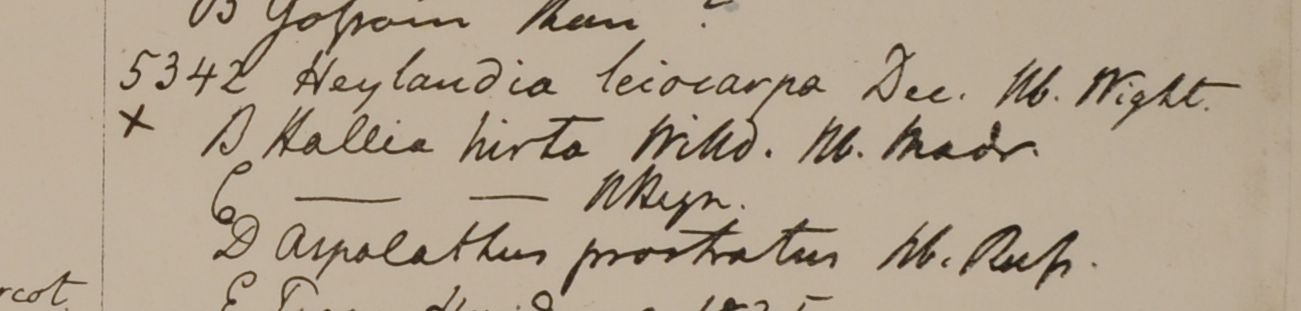 B
5342 Heylandia leiocarpa Dec. Hb. Wight.
x B Hallia hirta Willd. Hb. Madr.
C — — HHeyn.
D Aspalathus prostratus Hb. Russ.
E
rcot